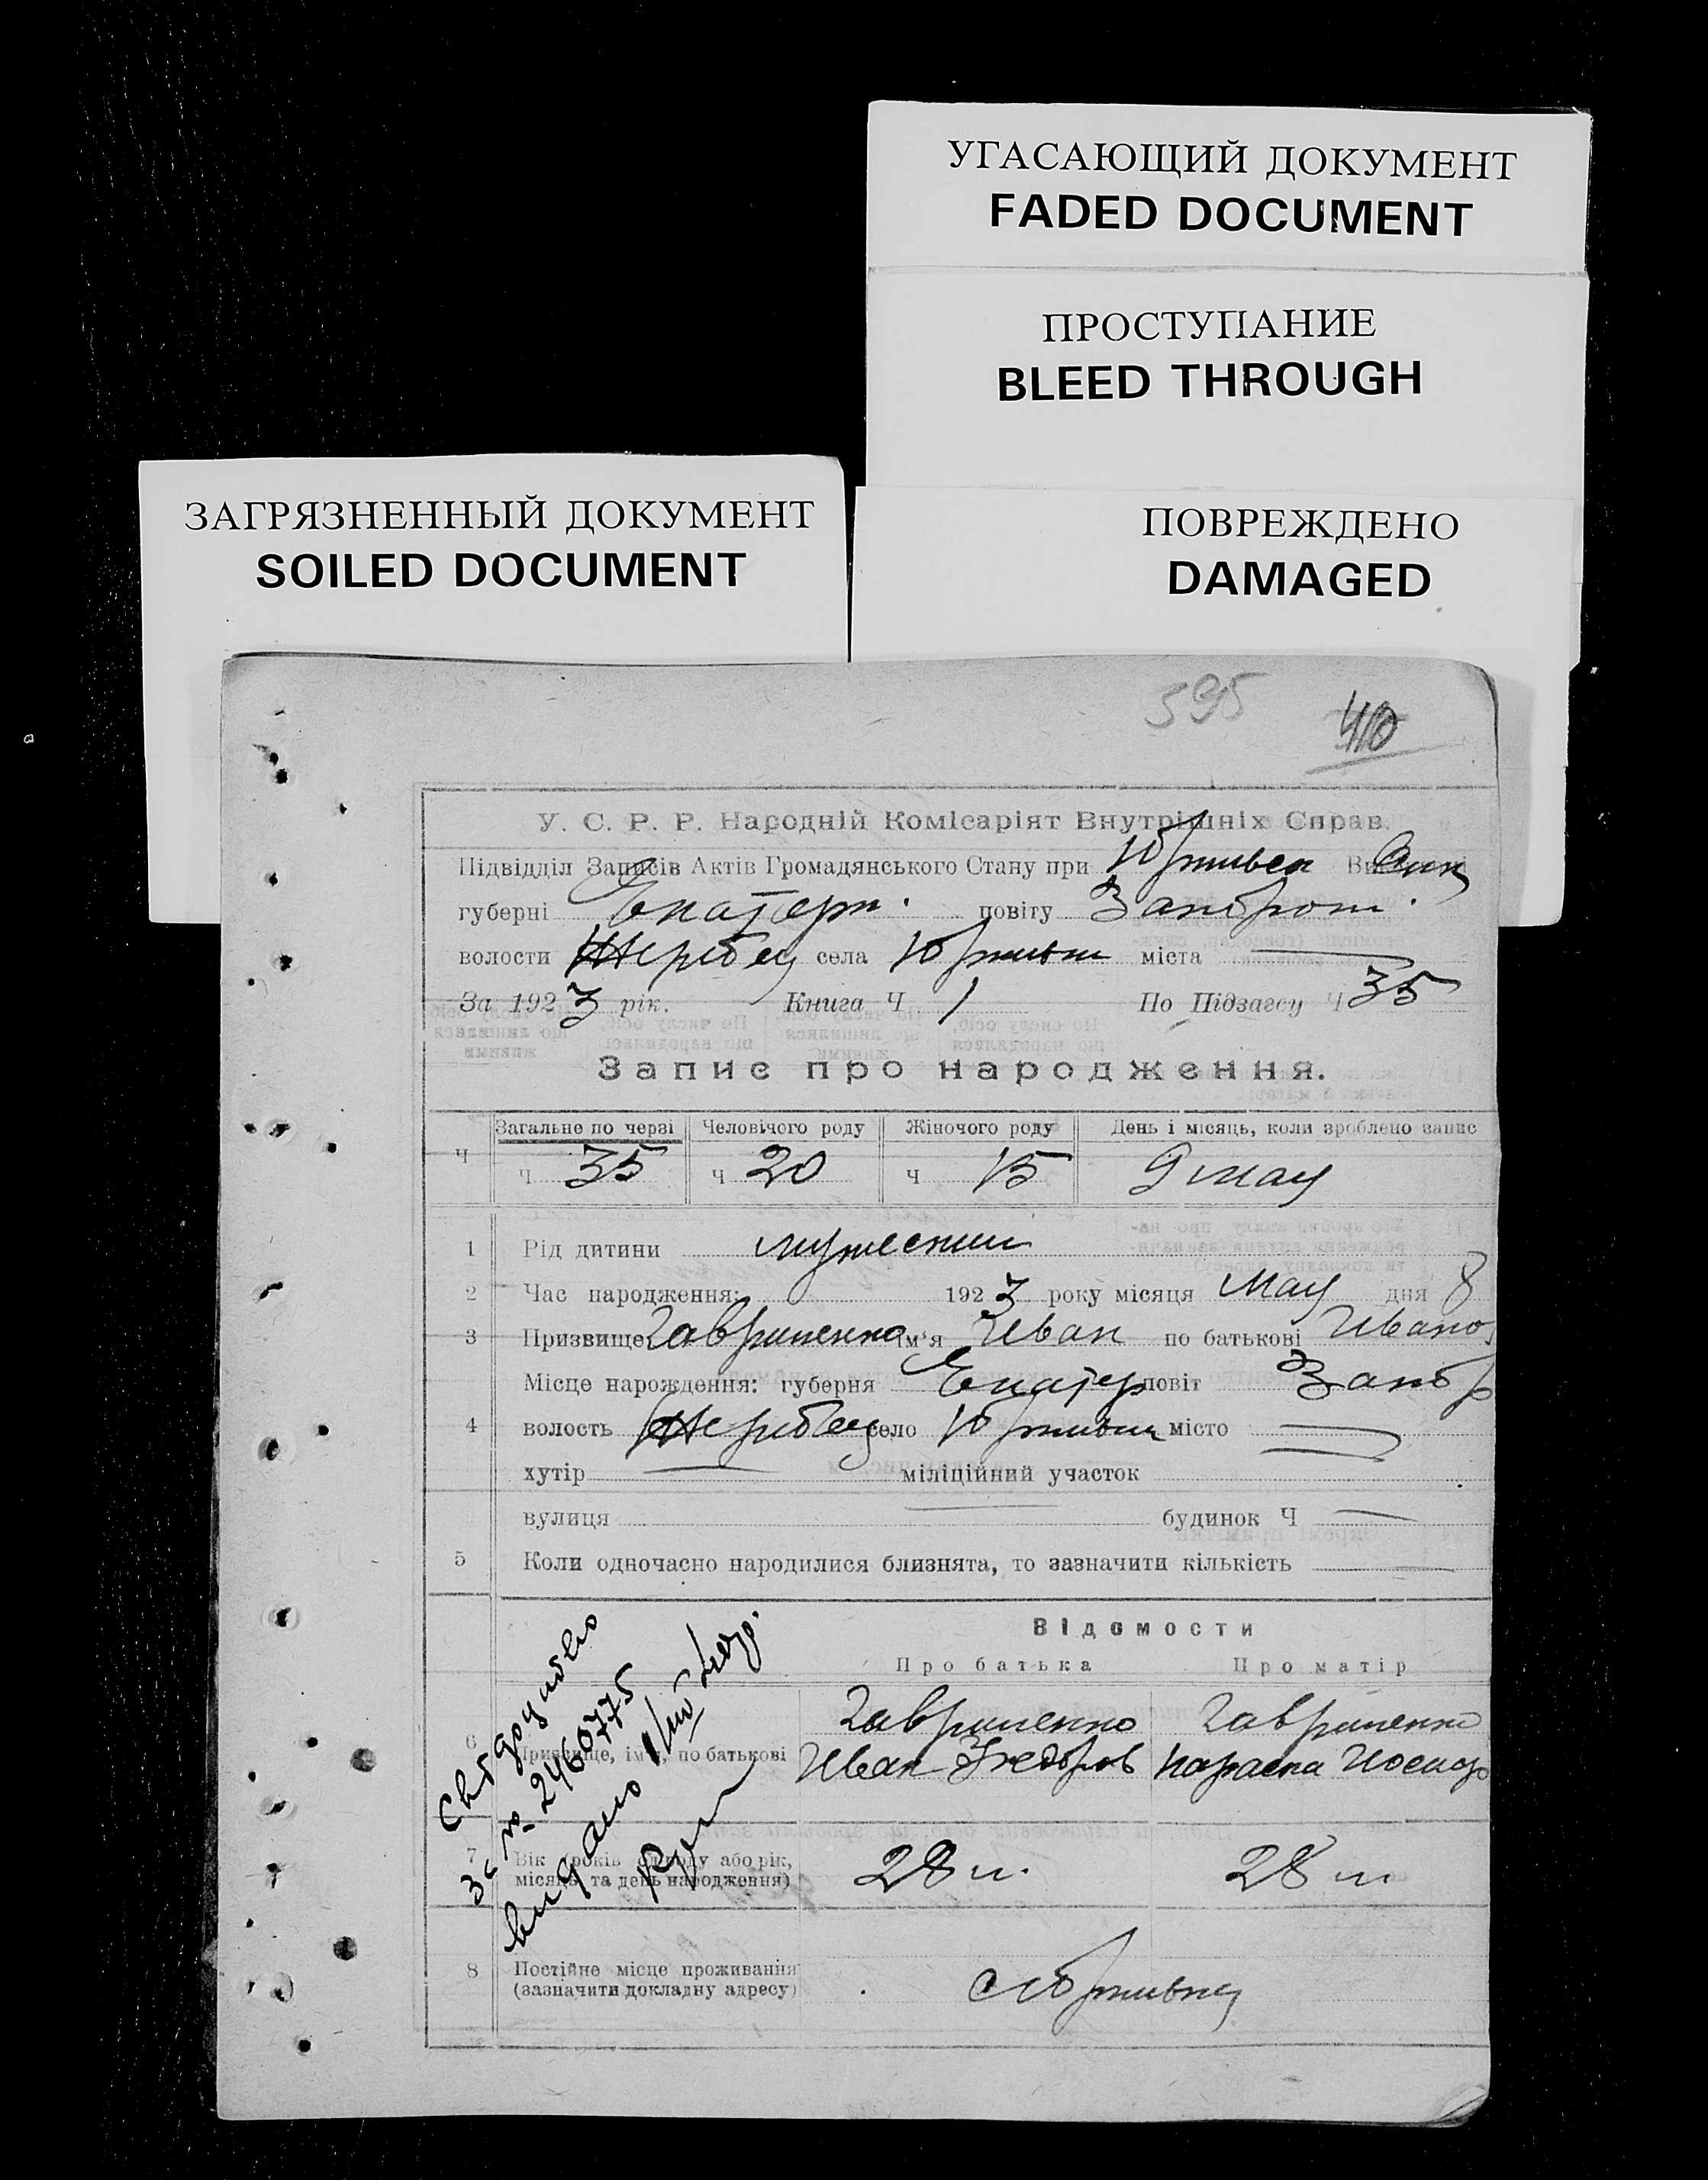 УГАСАЮЩИЙ ДОКУМЕНТ
FADED DOCUMENT
ПРОСТУПАНИЕ
BLEED THROUGH
ЗАГРЯЗНЕННЫЙ ДОКУМЕНТ
SOILED DOCUMENT
ПОВРЕЖДЕНО
DAMAGED
595
410
У. С. Р. Р. Народній Комісаріят Внутрішніх Справ.
Підвідділ Записів Актів Громадянського Стану при
губерні Екатерн. повіту Запорож.
волости Жеребец села міста
За 1923 рік. Книга Ч 1 По Підзагсу Ч 35
Запис про народження.
Загальне по черзі Человічого роду Жіночого роду День і місяць, коли зроблено запис
Ч Ч 35 Ч 20 Ч 15 9 мая
1 Рід дитини мужеский
2 Час народження: 1923 року місяця мая дня 8
3 Призвище Гавриленко ім'я Иван по батькові Иванов
Місце нарождення: губерня Екатер повіт Запор
4 волость Жеребец село місто
хутір міліційний участок
вулиця будинок Ч
5 Коли одночасно народилися близнята, то зазначити кількість
Відомости
Про батька Про матір
6 Призвище, ім'я, по батькові Гавриленко Гавриленко
Иван Федоров Параска
7 Вік (років одроду або рік, місяць та день народження) 28 л. 28 л.
8 Постійне місце проживання
(зазначити докладну адресу)
За № 2460775
видано